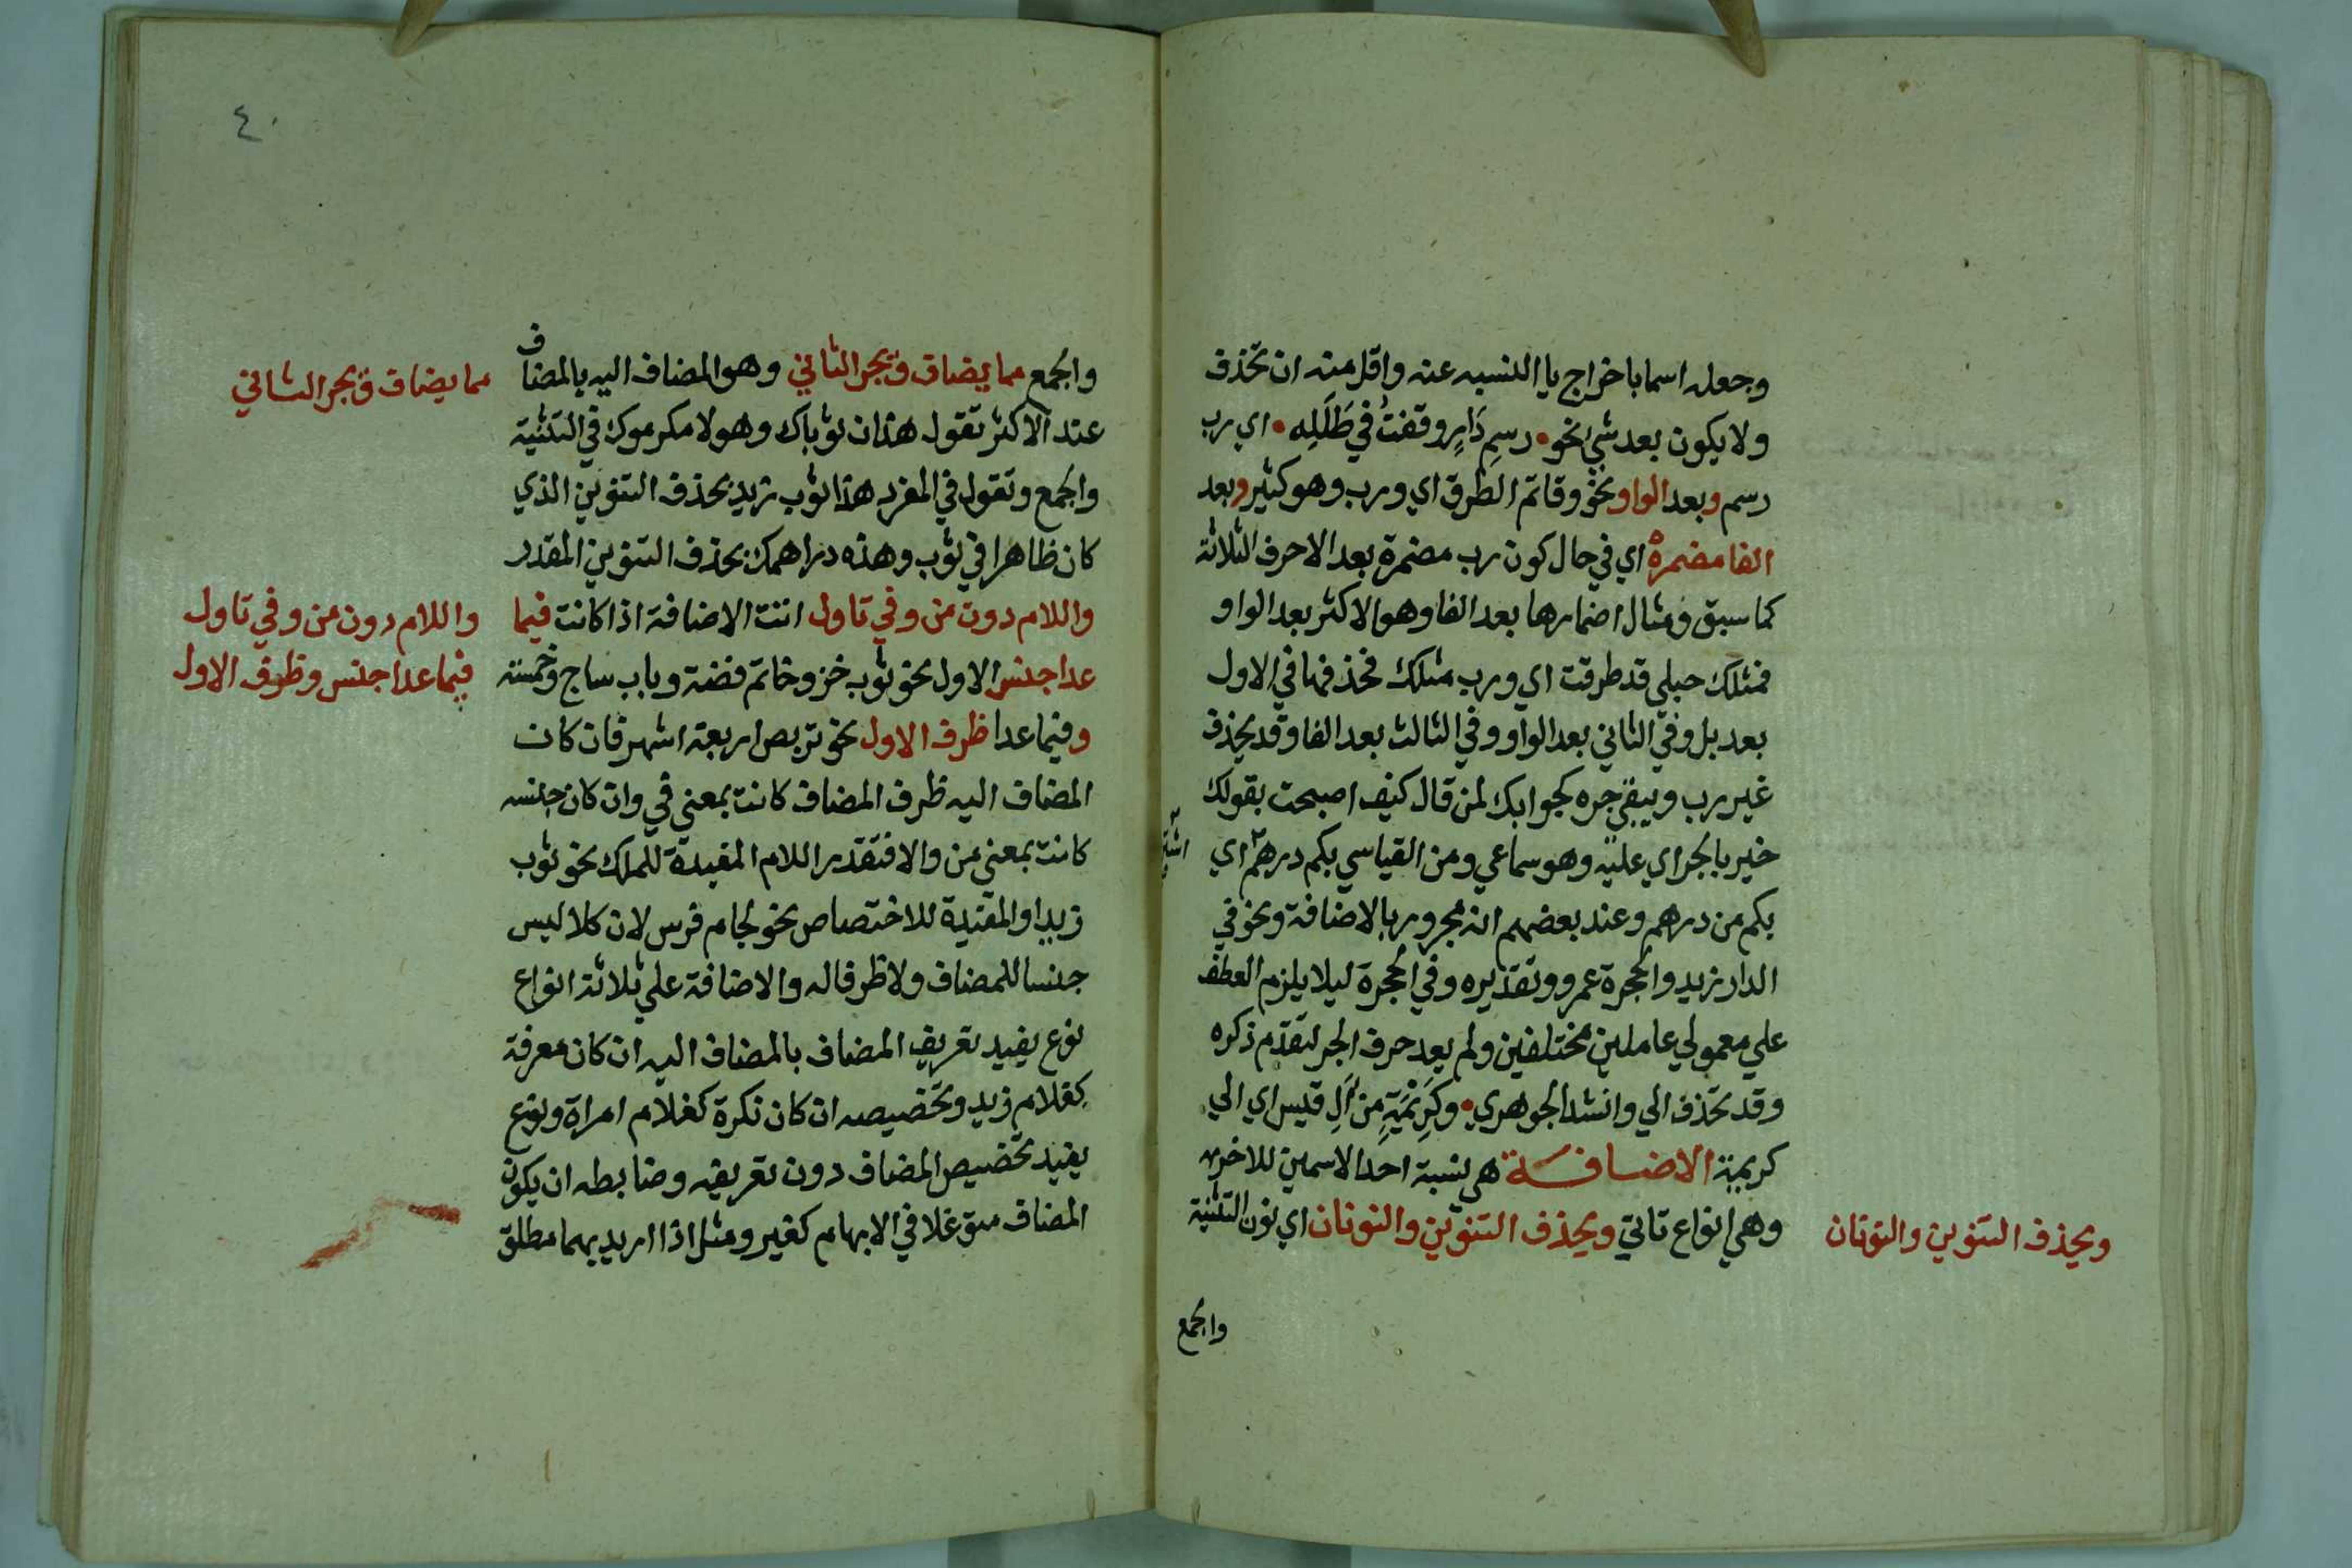 وجعله اسما باخراج يا النسبه عنه واقل منه ان تحذف
ولا يكون بعد شي نحو • رسمِ دَارٍ وقفتُ في طَلَلِه • اي رب
رسم وبعد الواو نحو وقاتم الطرق اي ورب وهو كثير وبعد
الفا مضمرة اي في حال كون رب مضمرة بعد الاحرف الثلاثة
كما سبق ومثال اضمارها بعد الفا وهو الاكثر بعد الواو
فمثلك حبلي قد طرقت اي ورب مثلك فحذفها في الاول
بعد بل وفي الثاني بعد الواو وفي الثالث بعد الفا وقد يحذف
غير رب ويبقي جره كجوابك لمن قال كيف اصبحت بقولك
خير بالجر اي علي وهو سماعي ومن القياسي بكم درهم اي
بكم من درهم وعند بعضهم انه مجرور بالاضافة ونحو في
الدار زيد والحجرة عمرو وتقديره وفي الحجرة ليلا يلزم العطف
علي معمولي عاملين مختلفين ولم يعد حرف الجر لتقدم ذكره
وقد تحذف الي وانشد الجوهري • وكَرِيْمَةٍ من آلِ قيس اي الي
كريمة الاضافة هي نسبة احد الاسمين للاخر
وهي انواع تاتي ويحذف التنوين والنونان اي نون التثنية
ويحذف التنوين والنونان
والجمع
٤٠
والجمع مما يضاف ويجر الثاني وهو المضاف اليه بالمضاف
مما يضاف ويجر الثاني
عند الاكثر تقول هذان ثوباك وهولا مكرموك في التثنية
والجمع وتقول في المفرد هذا ثوب زيد بحذف التنوين الذي
كان ظاهرا في ثوب وهذه دراهمك بحذف التنوين المقدر
واللام دون من وفي تاول انت الاضافة اذا كانت فيما
واللام دون من وفي تاول
عدا جنس الاول نحو ثوب خز وخاتم فضة وباب ساج وخمسة
فيما عدا جنس وظرف الاول
وفيما عدا ظرف الاول نحو تربص اربعة اشهر فان كان
المضاف اليه ظرف المضاف كانت بمعني في وان كان جنسه
كانت بمعني من والا فتقدير اللام المفيدة للملك نحو ثوب
زيد او المفيدة للاختصاص نحو لجام فرس لان كلا ليس
جنسا للمضاف ولا ظرفا له والاضافة علي ثلاثة انواع
نوع يفيد تعريف المضاف بالمضاف اليه ان كان معرفة
كغلام زيد وتخصيصه ان كان نكرة كغلام امراة ونوع
يفيد تخصيص المضاف دون تعريفه وضابطه ان يكون
المضاف متوغلا في الابهام كغير ومثل اذا اريد بهما مطلق